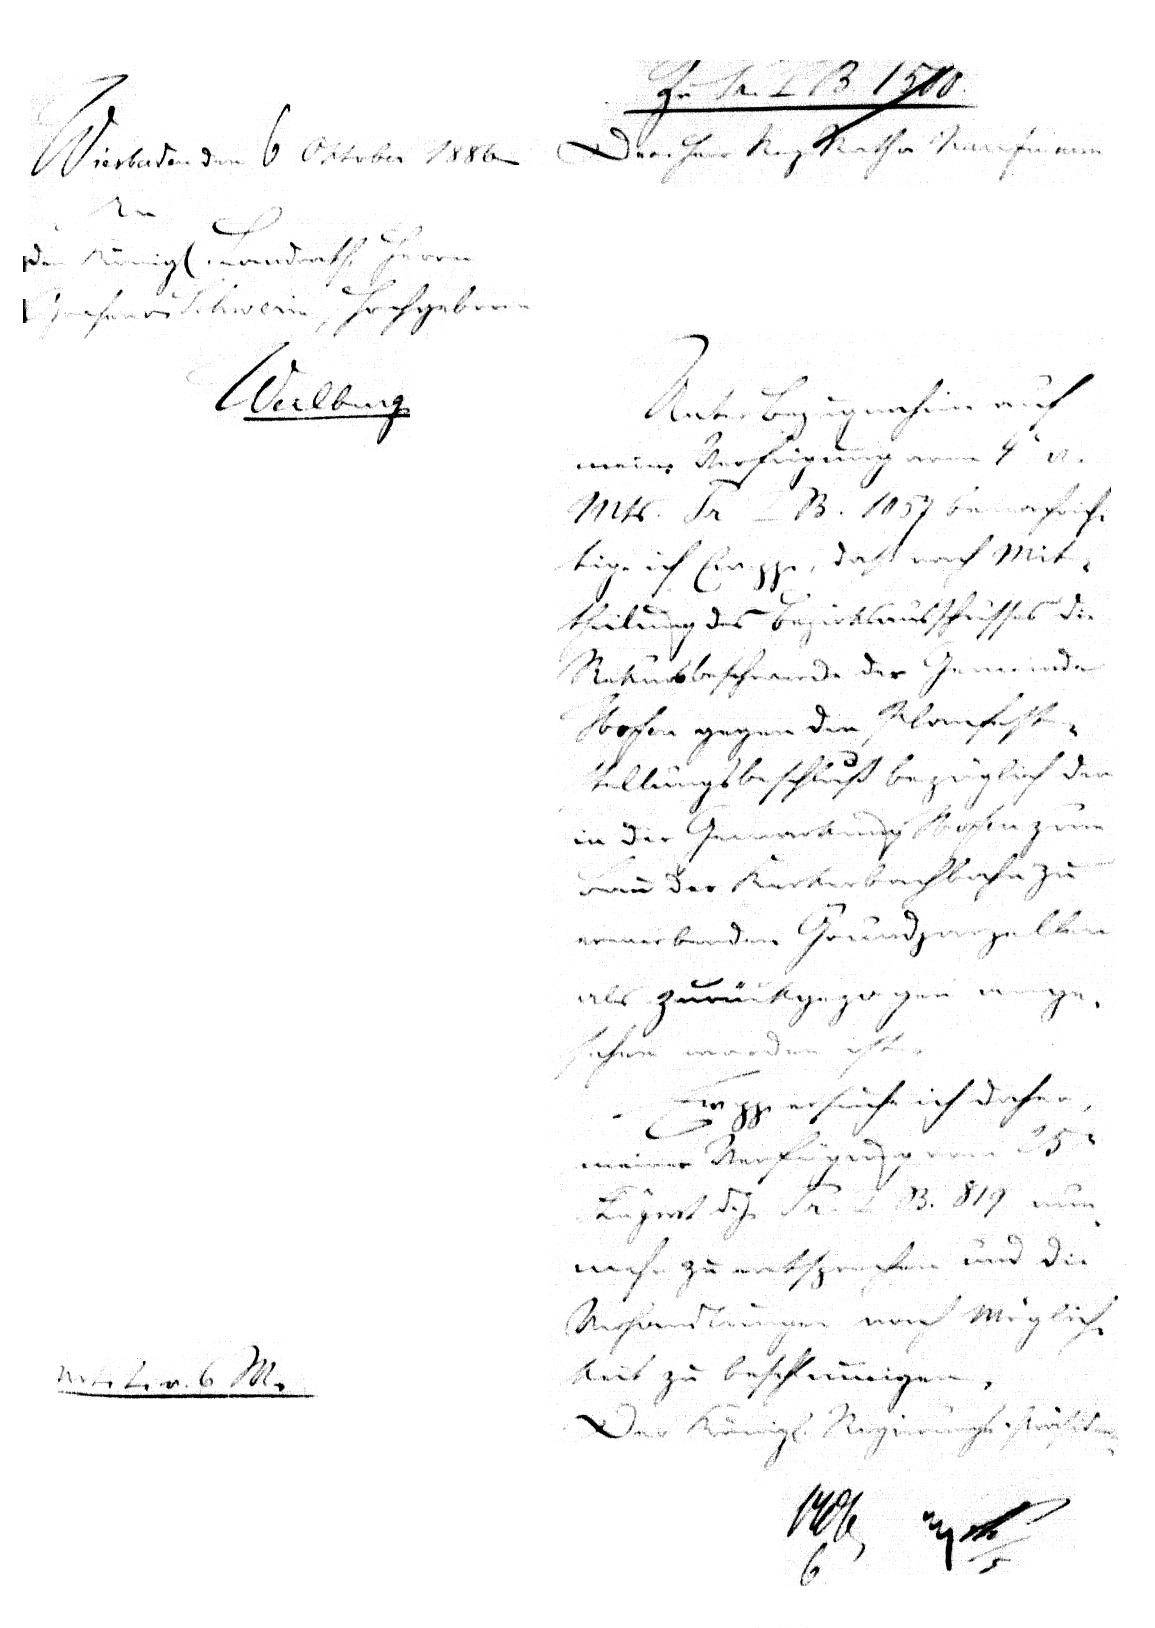 Zu Pr. I B. 1500.
Wiesbaden den 6 Oktober 1886
Dem Herrn Reg. Rath
An
den Königl. Landrath Herrn
Grafen Schwerin, Hochgeboren
Weilburg
Unter Bezugnahme auf
meine Verfügung vom 4n v.
Mts. Pr. I B. 1057 benachrich-
tige ich Ew pp., daß nach Mit-
theilung des Bezirksausschusses die
Rekursbeschwerde der Gemeinde
Hofen gegen den Planfest-
stellungsbeschluß bezüglich der
in der Gemarkung Hofen zum
Bau der Kerkerbachbahn zu
erwerbenden Grundparzellen
als zurückgezogen ange-
sehen worden ist.
Ew pp. ersuche ich daher,
meiner Verfügung vom 25n
August d. J. Pr. I B. 819 nun-
mehr zu entsprechen und die
Verhandlungen nach Möglich-
keit zu beschleunigen.
Der Königl. Regierungs-Präsident
6
5